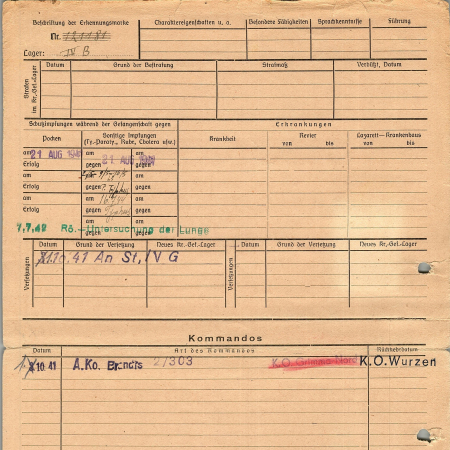 Beschriftung der Erkennungsmarke
Nr. 121181
Lager: IV B
Charaktereigenschaften u. a.
Besondere Fähigkeiten
Sprachkenntnisse
Führung
Strafen im Kr.-Gef.-Lager
Datum
Grund der Bestrafung
Strafmaß
Verbüßt, Datum
Schutzimpfungen während der Gefangenschaft gegen
Erkrankungen
Pocken
Sonstige Impfungen
(Ty.-Paraty., Ruhr, Cholera usw.)
Krankheit
Revier
von bis
Lazarett-Krankenhaus
von bis
am 21 AUG 1941
am
Erfolg
gegen 21 AUG 1941
am
am
Erfolg
gegen
am
am
Erfolg
gegen
am
am
Erfolg
gegen
7.7.42 Rö.-Untersuchung der Lunge
Versetzungen
Datum
Grund der Versetzung
Neues Kr.-Gef.-Lager
Versetzungen
Datum
Grund der Versetzung
Neues Kr.-Gef.-Lager
10.41 An St. IV G
Kommandos
Datum
Art des Kommandos
Rückkehrdatum
10 41 A.Ko. Brandis 2/303
K.O. Wurzen